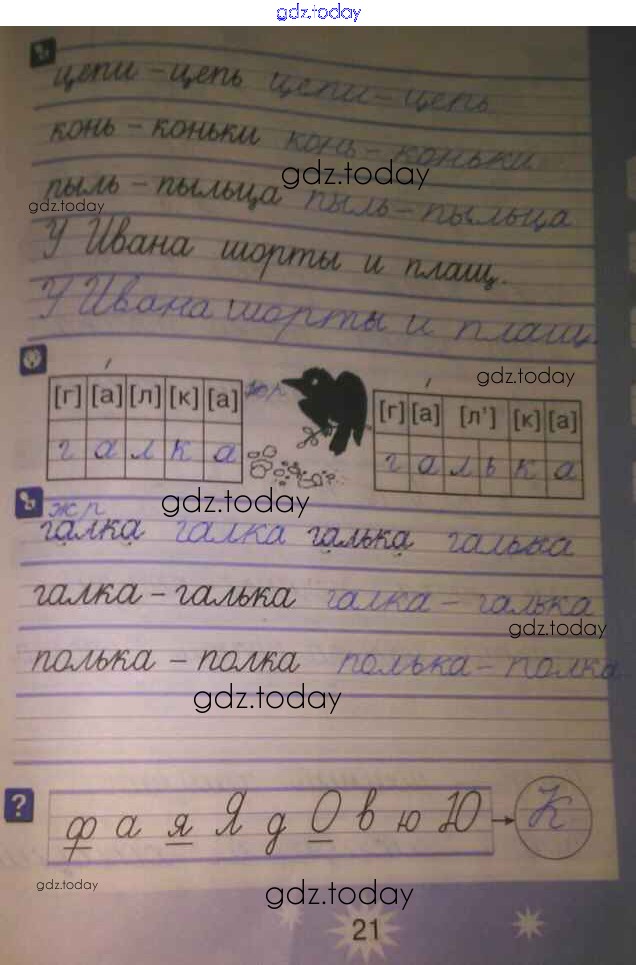 gdz.today
цепи – цепь цепи – цепь
конь – коньки конь – коньки
gdz.today
пыль – пыльца пыль – пыльца
gdz.today
У Ивана шорты и плащ.
У Ивана шорты и плащ.
gdz.today
[г] [а] [л] [к] [а] [г] [а] [л'] [к] [а]
г а л к а г а л ь к а
gdz.today
ж р
галка галка галька галька
галка – галька галка – галька
gdz.today
полька – полка полька – полка
gdz.today
? ф а я Я д О в ю Ю К
gdz.today
gdz.today
21